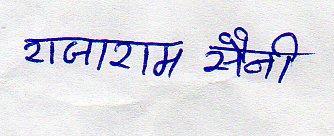 राजाराम सैनी